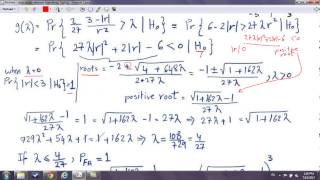 g(λ) = Pr{ 2/27 · 3-|r|/|r|² > λ | H₀ } = Pr{ 6-2|r| > 27λ|r|² | H₀ }
= Pr{ 27λ|r|² + 2|r| - 6 < 0 | H₀ }
|r|>0
positive root
when λ=0
Pr{|r|<3|H₀}=1
roots = -2±√4+648λ / 2·27λ = -1±√1+162λ / 27λ , λ>0
positive root = √1+162λ -1 / 27λ
√1+162λ -1 / 27λ = 1 → √1+162λ -1 = 27λ → 27λ+1 = √1+162λ
729λ² + 54λ + 1 = 1+162λ ⇒ λ = 108/729 = 4/27
If λ ≤ 4/27, P_FA = 1